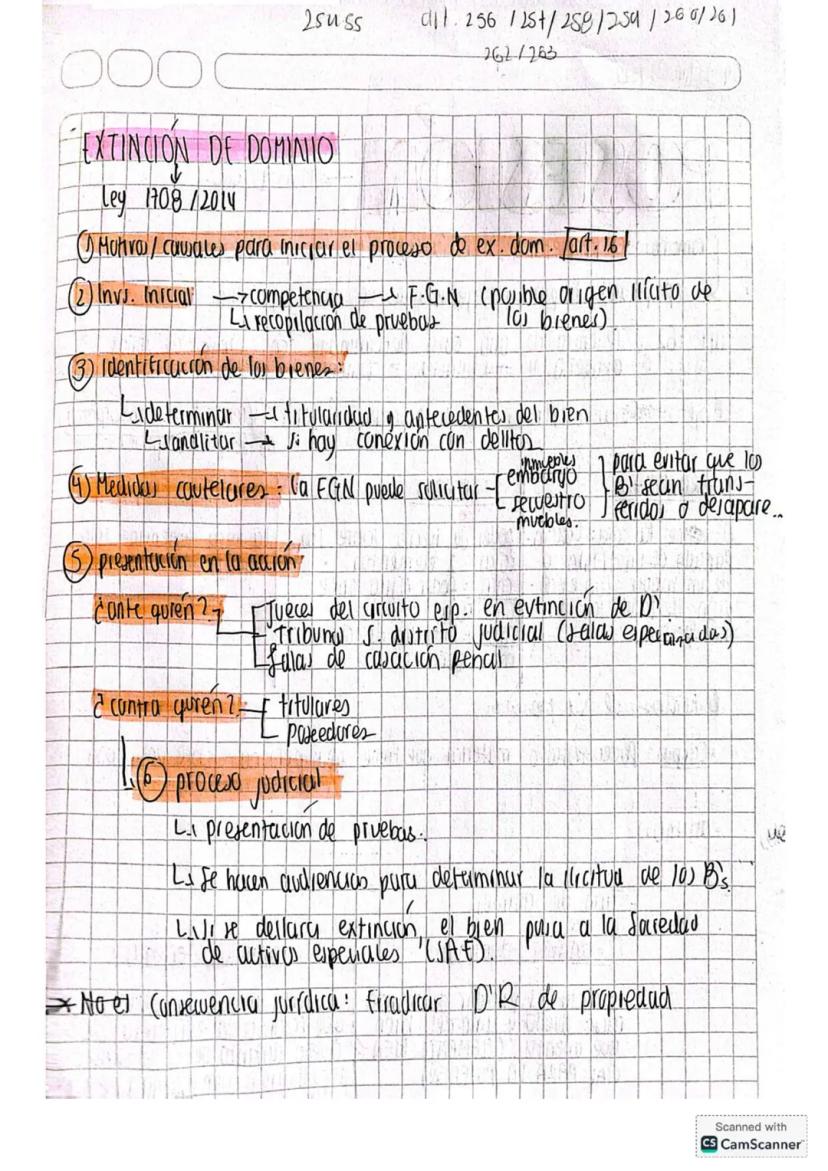 254 ss art. 256 / 257 / 258 / 259 / 260 / 261
262 / 263
EXTINCIÓN DE DOMINIO
Ley 1708 / 2014
① Motivos / causales para iniciar el proceso de ex. dom. art. 16
② Invs. Inicial → competencia → F.G.N (posible origen ilícito de
↳ recopilación de pruebas los bienes)
③ Identificación de los bienes:
↳ determinar → titularidad y antecedentes del bien
↳ analizar → si hay conexión con delitos
④ Medidas cautelares: la FGN puede solicitar
inmuebles
embargo
secuestro
muebles.
para evitar que los
B' sean trans-
feridos o desapare..
⑤ presentación en la acción
¿ante quién?
Jueces del circuito esp. en extinción de D'
Tribuna S. distrito judicial (salas especializadas)
Salas de casación penal
¿contra quién?
titulares
poseedores
⑥ proceso judicial
↳ presentación de pruebas.
↳ Se hacen audiencias para determinar la ilicitud de los B's
↳ Si se declara extinción, el bien pasa a la Sociedad
de activos especiales (SAE).
No es consecuencia jurídica: Erradicar D'R de propiedad
Scanned with
CS CamScanner